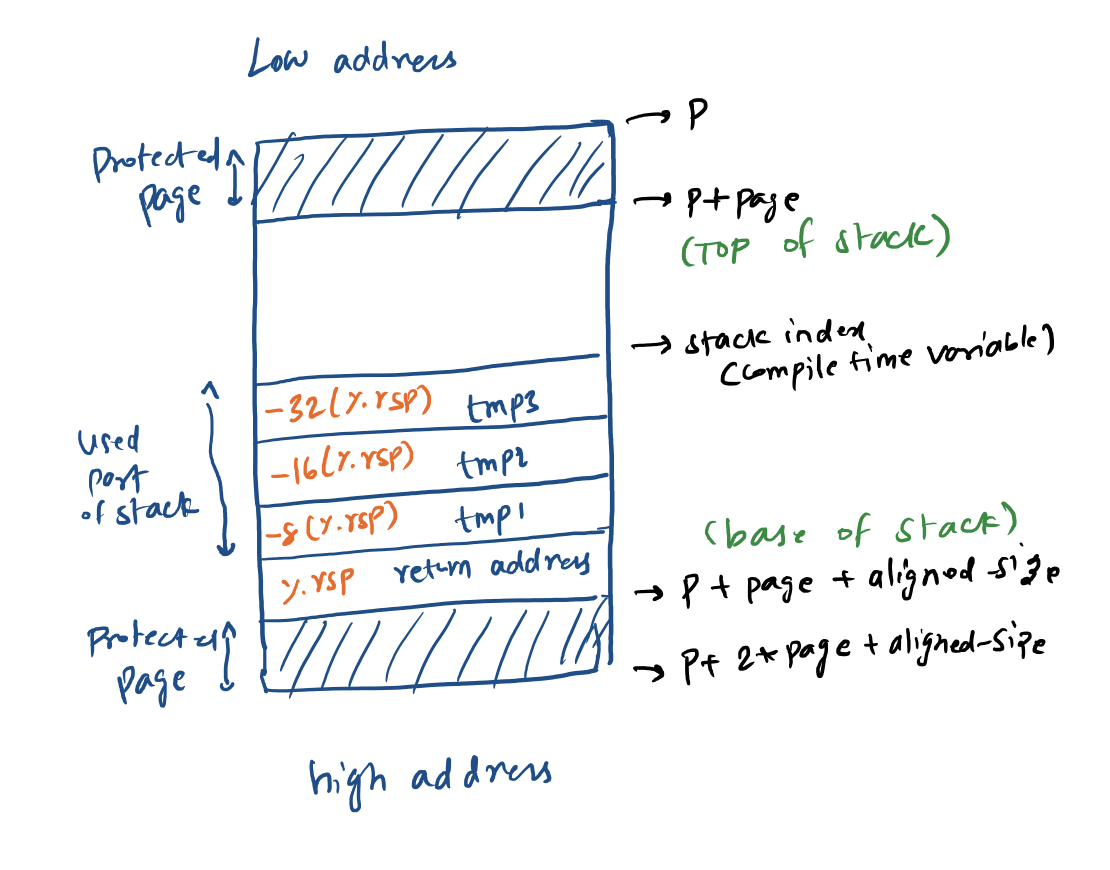 Low address
→ P
Protected
page
→ P+page
(Top of stack)
→ stack index
(compile time variable)
-32(%rsp) tmp3
used
part
of stack
-16(%rsp) tmp2
-8(%rsp) tmp1
(base of stack)
%rsp return address
→ P + page + aligned-size
Protected
page
→ P+ 2* page + aligned-size
high address